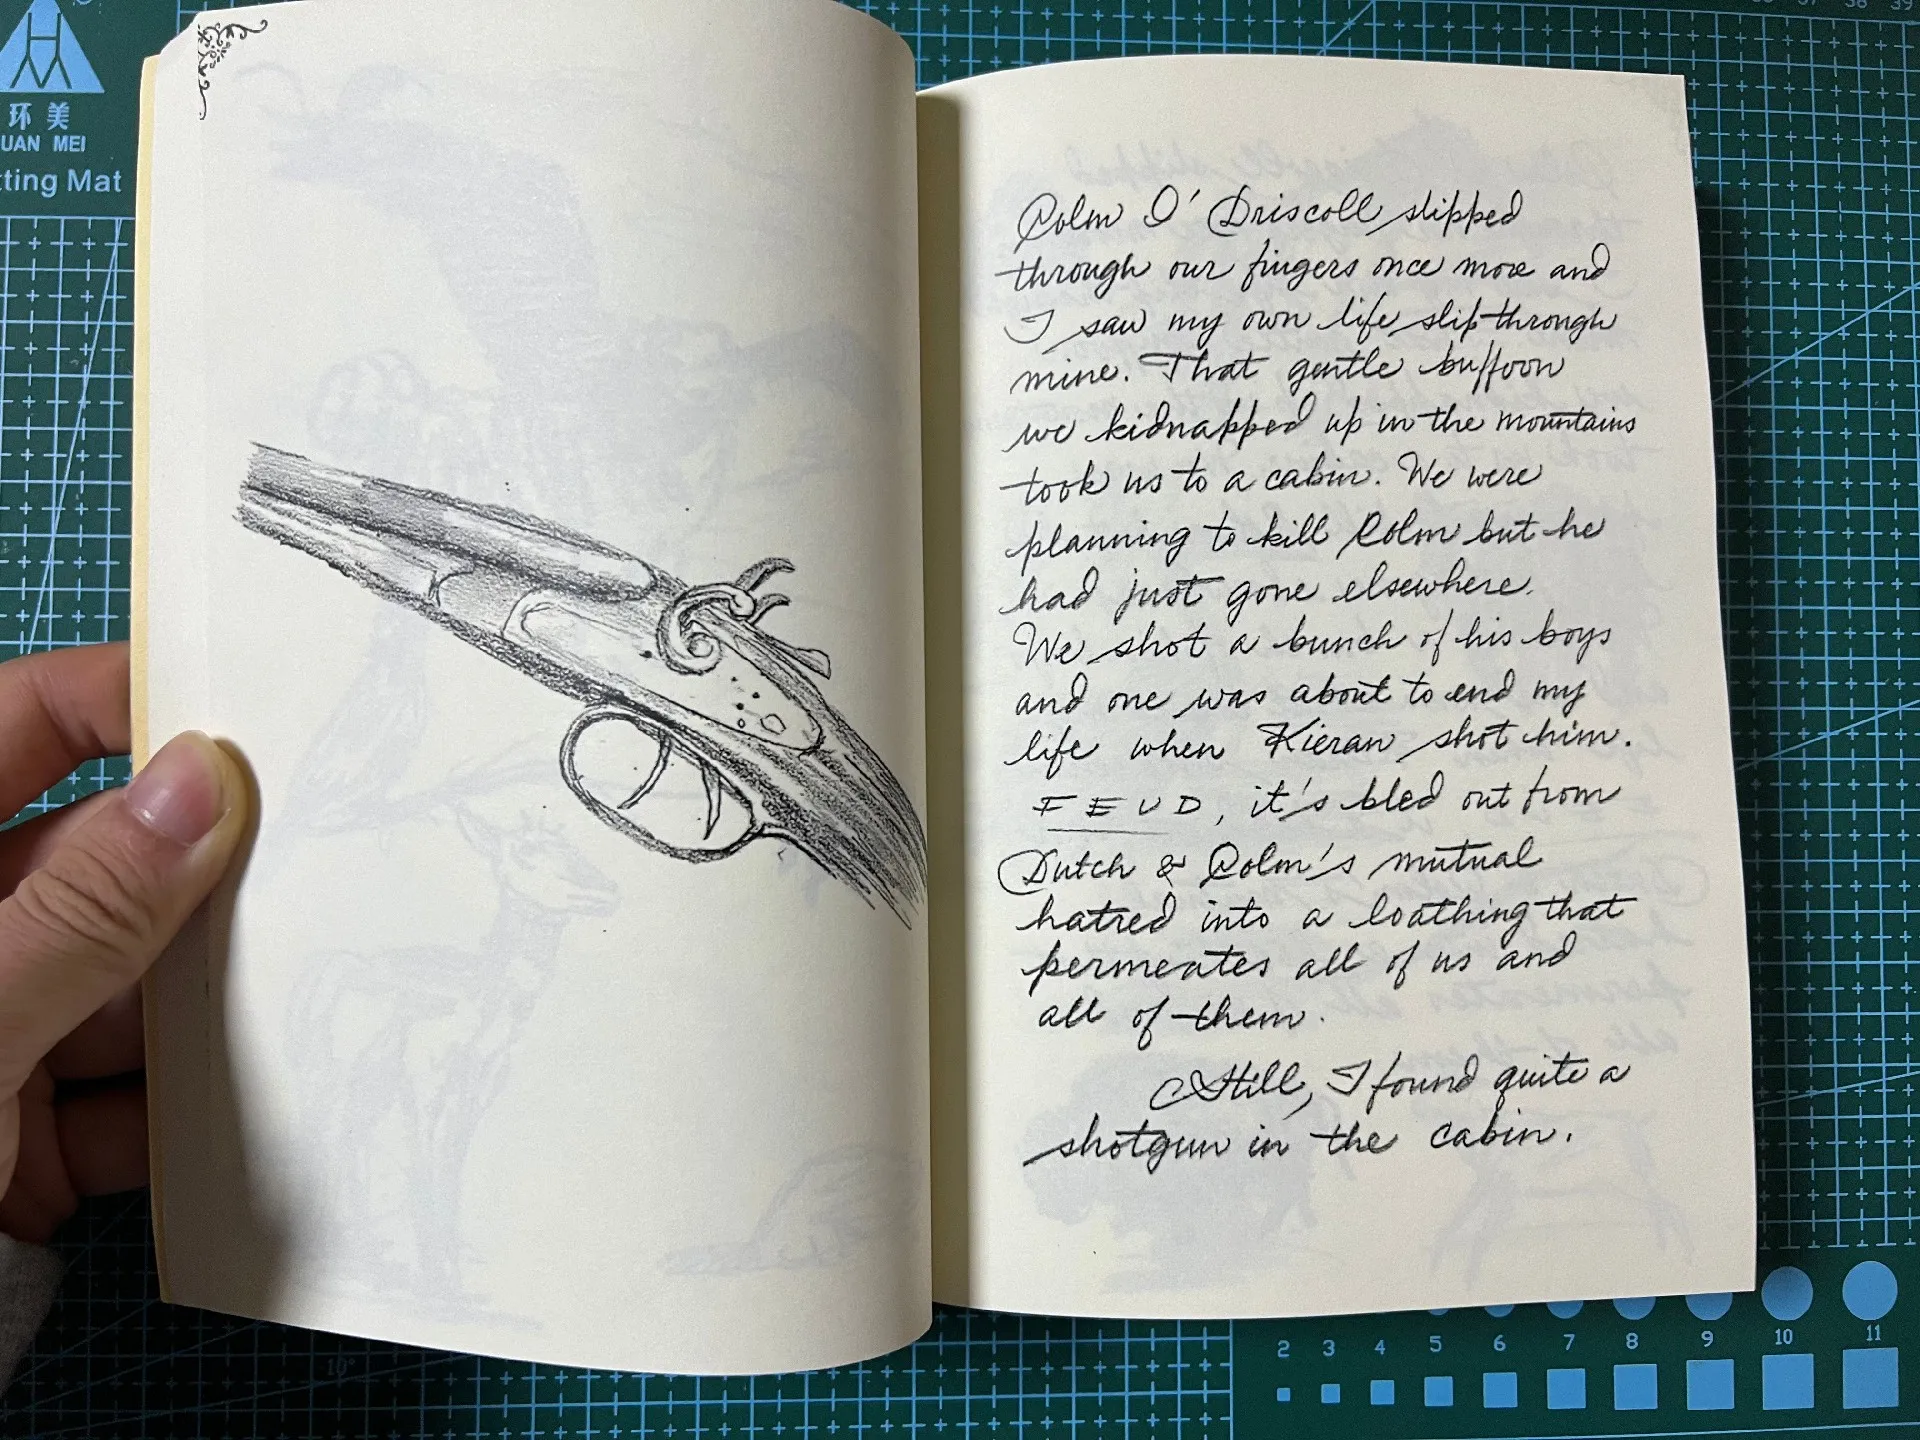 环美
UAN MEI
tting Mat
37 38 39
Colm O'Driscoll slipped
through our fingers once more and
I saw my own life slip through
mine. That gentle buffoon
we kidnapped up in the mountains
took us to a cabin. We were
planning to kill Colm but he
had just gone elsewhere.
We shot a bunch of his boys
and one was about to end my
life when Kieran shot him.
FEUD, it's bled out from
Dutch & Colm's mutual
hatred into a loathing that
permeates all of us and
all of them.
Still, I found quite a
shotgun in the cabin.
10°
2 3 4 5 6 7 8 9 10 11